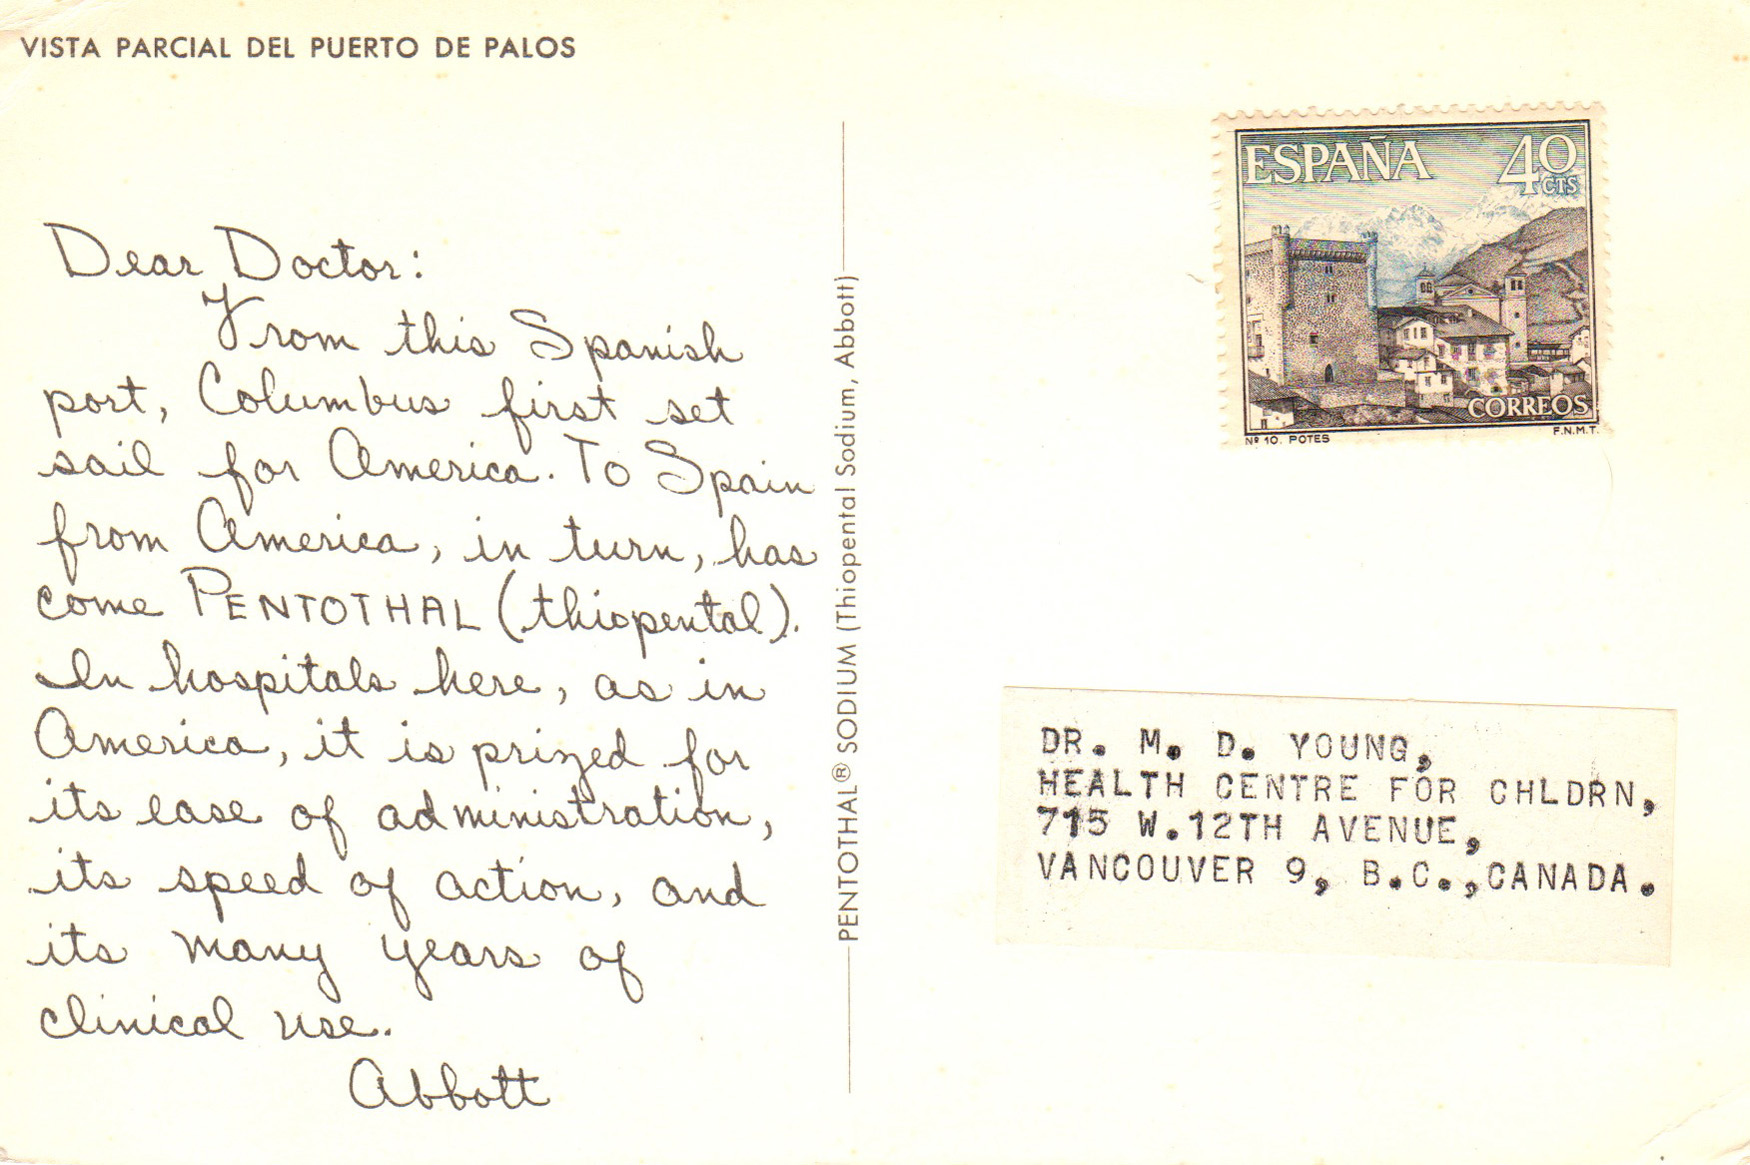 VISTA PARCIAL DEL PUERTO DE PALOS
Dear Doctor:
From this Spanish
port, Columbus first set
sail for America. To Spain
from America, in turn, has
come PENTOTHAL (thiopental).
In hospitals here, as in
America, it is prized for
its ease of administration,
its speed of action, and
its many years of
clinical use.
Abbott
PENTOTHAL® SODIUM (Thiopental Sodium, Abbott)
ESPAÑA 40
CTS
CORREOS
Nº 10. POTES F.N.M.T.
DR. M. D. YOUNG,
HEALTH CENTRE FOR CHLDRN,
715 W.12TH AVENUE,
VANCOUVER 9, B.C.,CANADA.